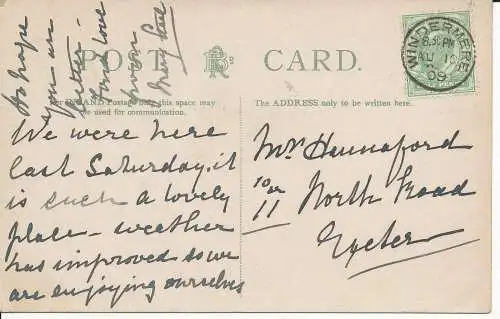 POST CARD.
For INLAND Postage only this space may
be used for communication.
The ADDRESS only to be written here.
WINDERMERE
8.30 PM
AU 10
09
We were here
last Saturday, it
is such a lovely
place - weather
has improved so we
are enjoying ourselves
hope
you are
better -
Fond love
from
Mrs Hannaford
10 or
11 North Road
Exeter